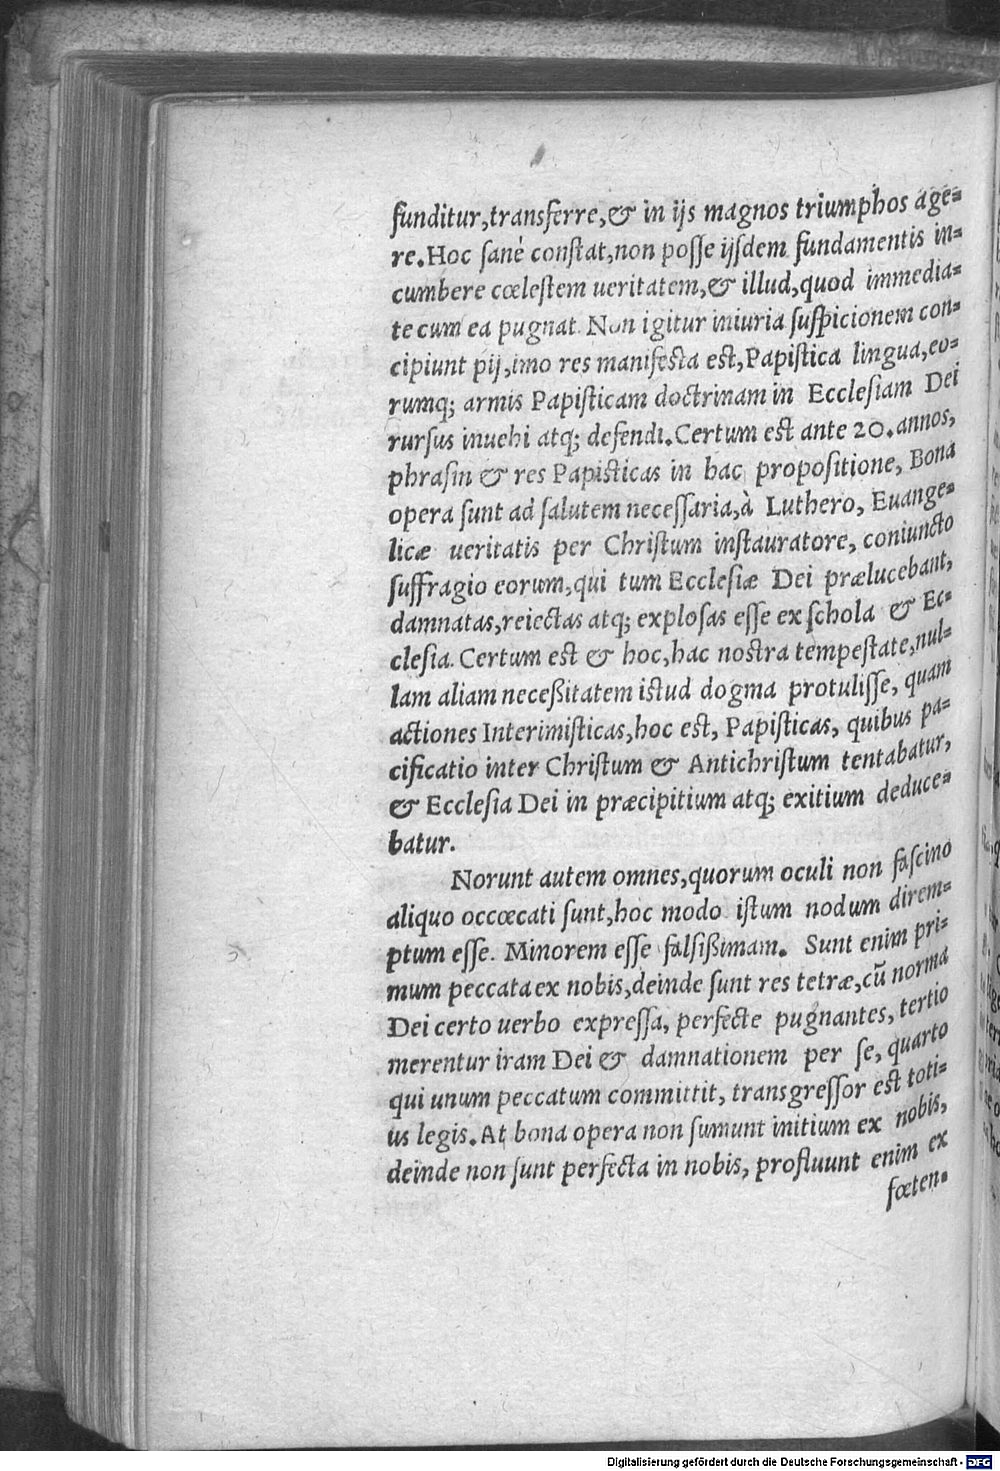 funditur,transferre,& in ijs magnos triumphos age=
re.Hoc sanè constat,non posse ijsdem fundamentis in=
cumbere cœlestem ueritatem,& illud,quod immedia=
te cum ea pugnat. Non igitur iniuria suspicionem con=
cipiunt pij,imo res manifesta est,Papistica lingua,eo=
rumq; armis Papisticam doctrinam in Ecclesiam Dei
rursus inuehi atq; defendi.Certum est ante 20.annos,
phrasin & res Papisticas in hac propositione, Bona
opera sunt ad salutem necessaria,à Luthero, Euange=
licæ ueritatis per Christum instauratore, coniuncto
suffragio eorum,qui tum Ecclesiæ Dei prælucebant,
damnatas,reiectas atq; explosas esse ex schola & Ec=
clesia. Certum est & hoc,hac nostra tempestate,nul=
lam aliam neceßitatem istud dogma protulisse, quam
actiones Interimisticas,hoc est, Papisticas, quibus pa=
cificatio inter Christum & Antichristum tentabatur,
& Ecclesia Dei in præcipitium atq; exitium deduce=
batur.
Norunt autem omnes,quorum oculi non fascino
aliquo occœcati sunt,hoc modo istum nodum direm=
ptum esse. Minorem esse falsißimam. Sunt enim pri=
mum peccata ex nobis,deinde sunt res tetræ,cũ norma
Dei certo uerbo expressa, perfecte pugnantes, tertio
merentur iram Dei & damnationem per se, quarto
qui unum peccatum committit, transgressor est toti=
us legis.At bona opera non sumunt initium ex nobis,
deinde non sunt perfecta in nobis, profluunt enim ex
fœten=
Digitalisierung gefördert durch die Deutsche Forschungsgemeinschaft - DFG